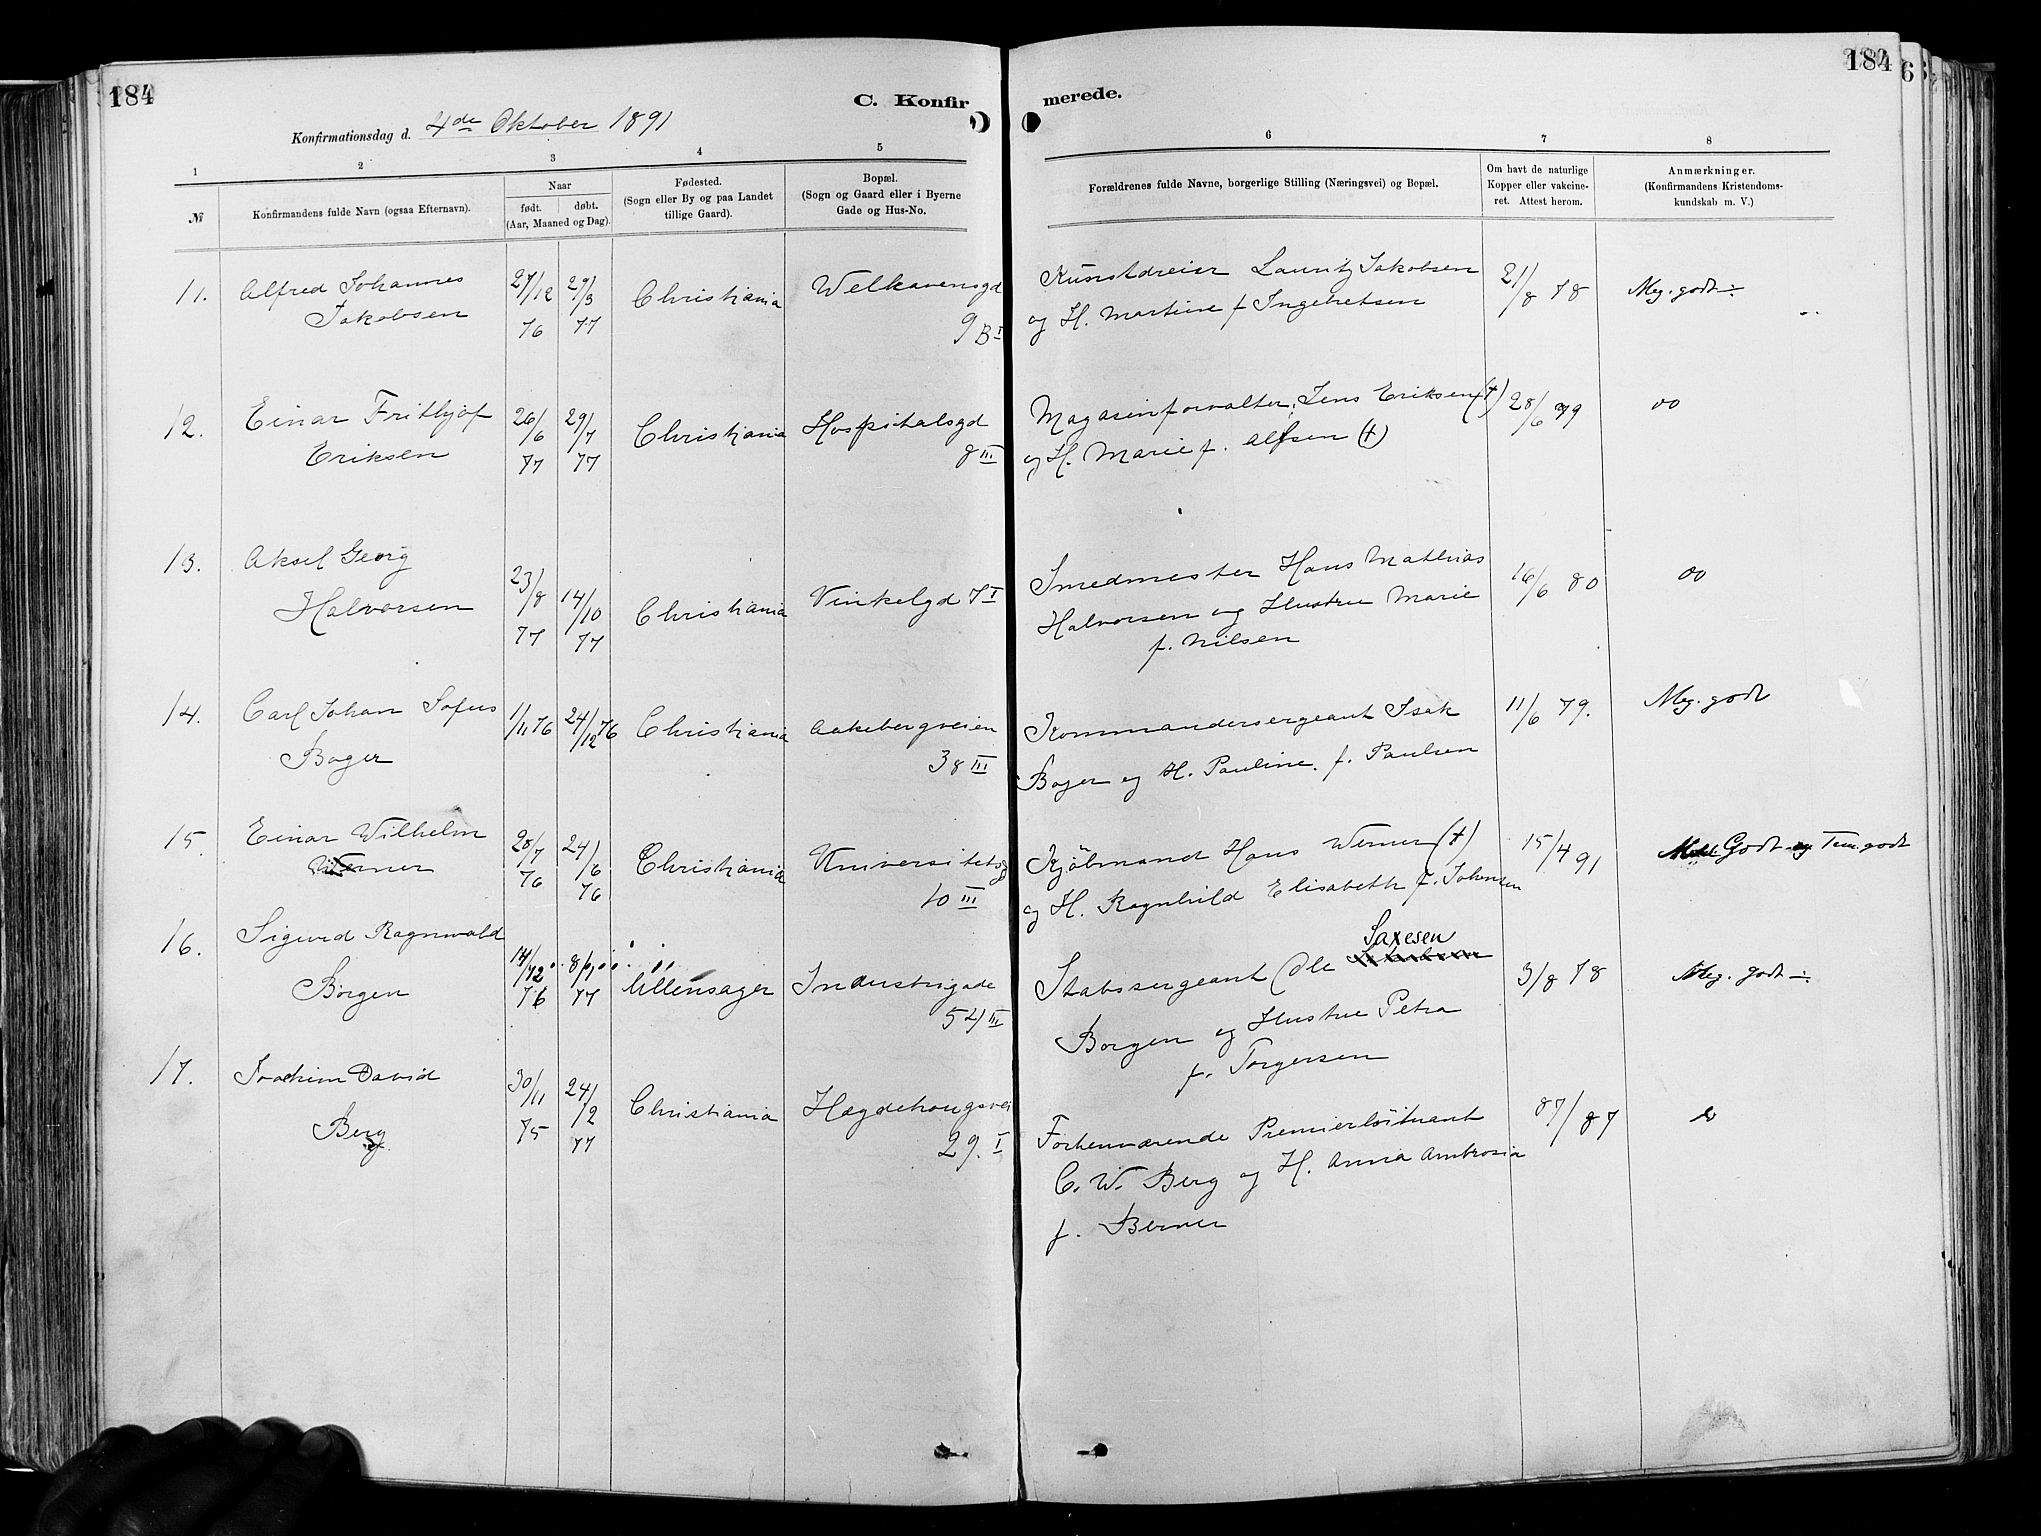 184
184
6
C. Konfir
merede.
Konfirmationsdag d. 4de Oktober 1891
1 2 3 4 5 6 7 8
№
Konfirmandens fulde Navn (ogsaa Efternavn).
Naar
født. døbt.
(Aar, Maaned og Dag).
Fødested.
(Sogn eller By og paa Landet
tillige Gaard).
Bopæl.
(Sogn og Gaard eller i Byerne
Gade og Hus-No.
Forældrenes fulde Navne, borgerlige Stilling (Næringsvei) og Bopæl.
Om havt de naturlige
Kopper eller vakcine-
ret. Attest herom.
Anmærkninger.
(Konfirmandens Kristendoms-
kundskab m. V.)
11. Alfred Johannes
Jakobsen
27/12 76
29/3 77
Christiania
Welhavensgd
9 B I
Kunstdreier Lauritz Jakobsen
og H. Martine f Ingebretsen
21/8 78
Meg. godt ÷
12. Einar Frithjof
Eriksen
26/6 77
29/7 77
Christiania
Hospitalsgd
8 III
Magasinforvalter Jens Eriksen (†)
og H. Marie f. Alfsen (†)
28/6 79
oo
13. Aksel Georg
Halvorsen
23/8 77
14/10 77
Christiania
Vinkelgd 7 I
Smedmester Hans Mathias
Halvorsen og Hustru Marie
f. Nilsen
16/6 80
oo
14. Carl Johan Sofus
Boger
1/11 76
24/12 76
Christiania
Aakebergveien
38 III
Kommandersergeant Isak
Boger og H. Pauline f. Paulsen
11/6 79.
Meg. godt
15. Einar Wilhelm
Werner
28/7 76
24/6 76
Christiania
Universitetsgd
10 III
Kjøbmand Hans Werner (†)
og H. Ragnhild Elisabeth f. Johnsen
15/4 91
Godt og Tem. godt
16. Sigurd Ragnvald
Borgen
14/12 76
8/ 77
Ullensager
Industrigade
54 III
Saxesen
Stabssergeant Ole
Borgen og Hustru Petra
f. Torgersen
3/8 78
Meg. godt ÷
17. Joachim David
Berg
30/11 75
24/2 77
Christiania
Hægdehougsvei
29. I
Forhenværende Premierløitnant
C. W. Berg og H. Anna Ambrosia
f. Berner
87/87